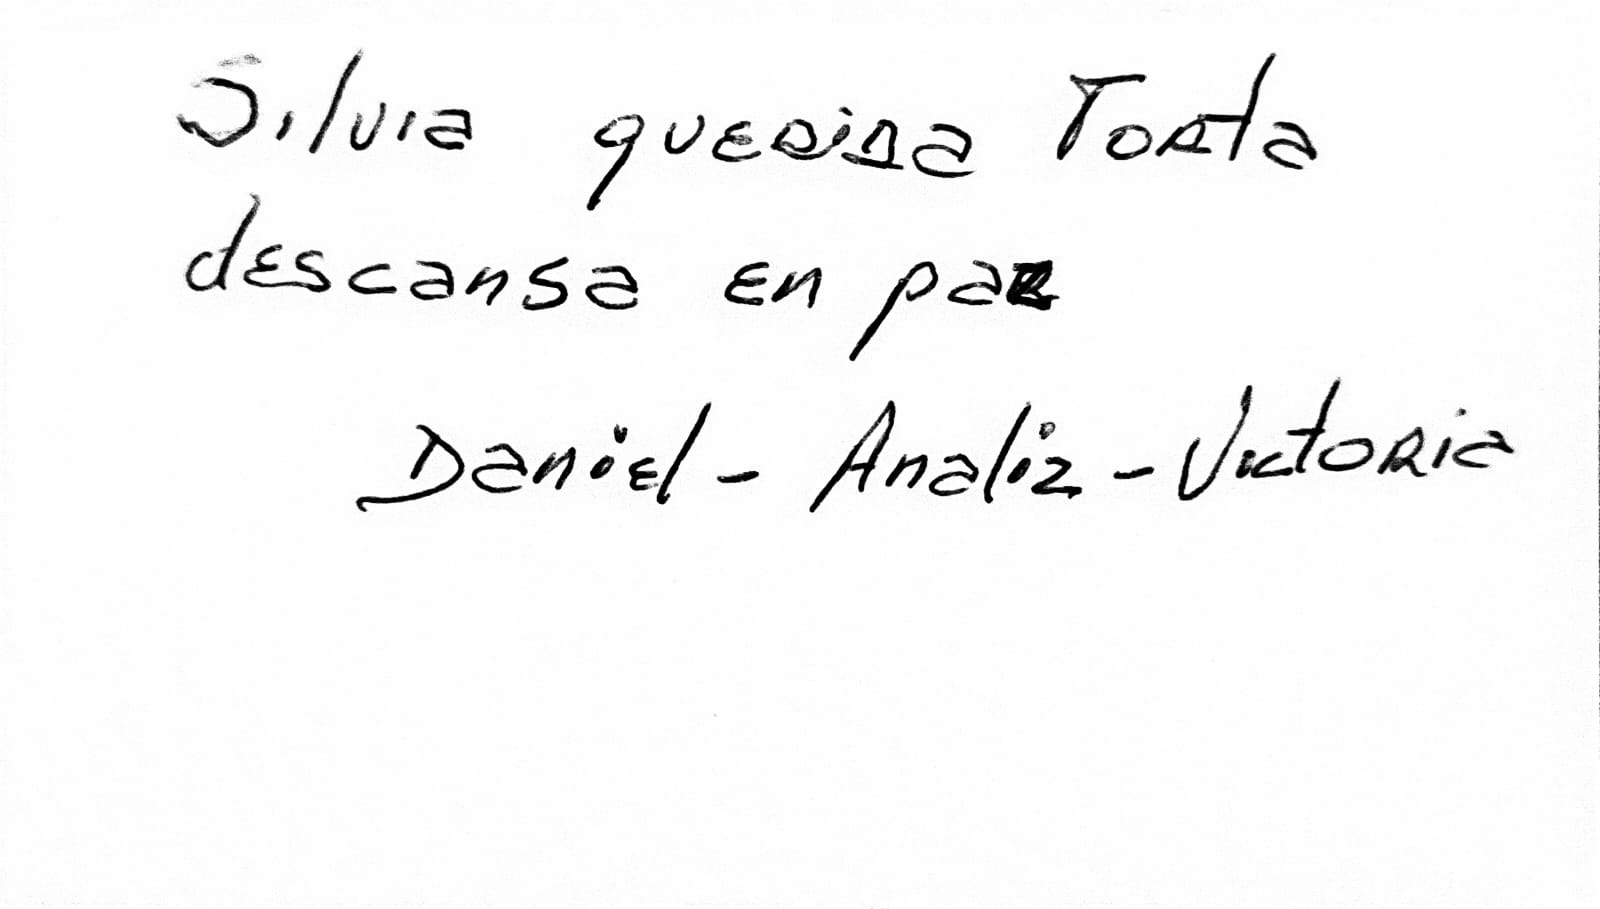 Silvia querida Torta
descansa en paz
Daniel - Analiz - Victoria